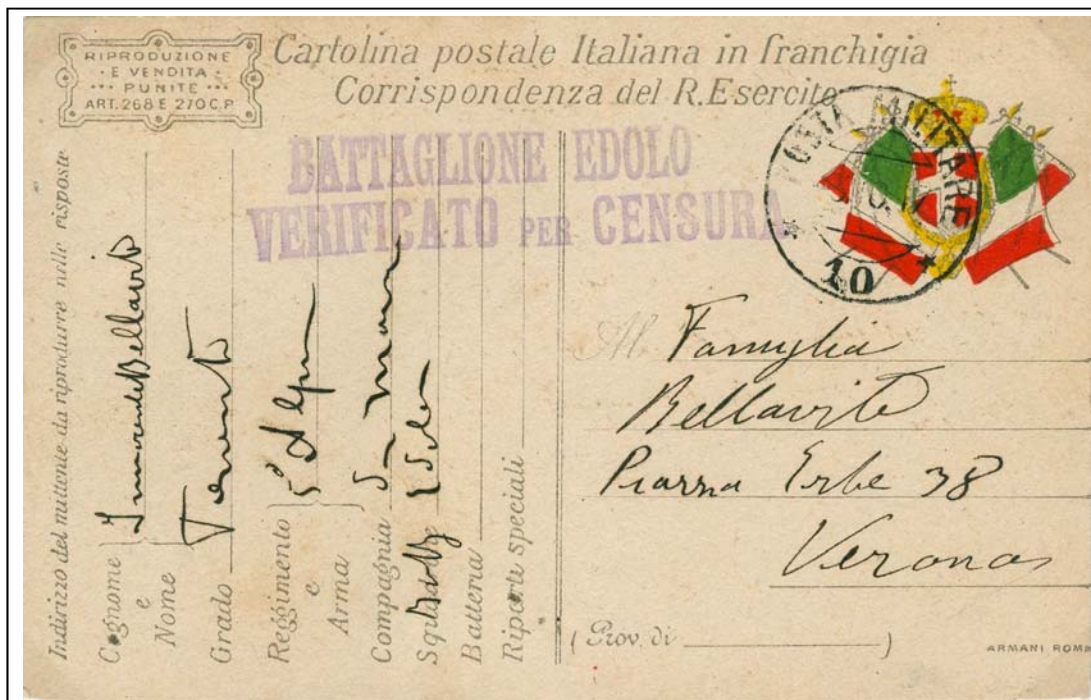 RIPRODUZIONE
E VENDITA
PUNITE
ART. 268 E 270 C.P.
Cartolina postale Italiana in franchigia
Corrispondenza del R. Esercito
BATTAGLIONE EDOLO
VERIFICATO PER CENSURA
POSTA MILITARE
10
Indirizzo del mittente da riprodurre nelle risposte
Cognome
e
Nome
Bellavite
Grado
Tenente
Reggimento
e
Arma
5°
Compagnia
Squad
Batteria
Riparto speciali
Al Famiglia
Bellavite
Piazza Erbe 38
Verona
(Prov. di )
ARMANI ROMA